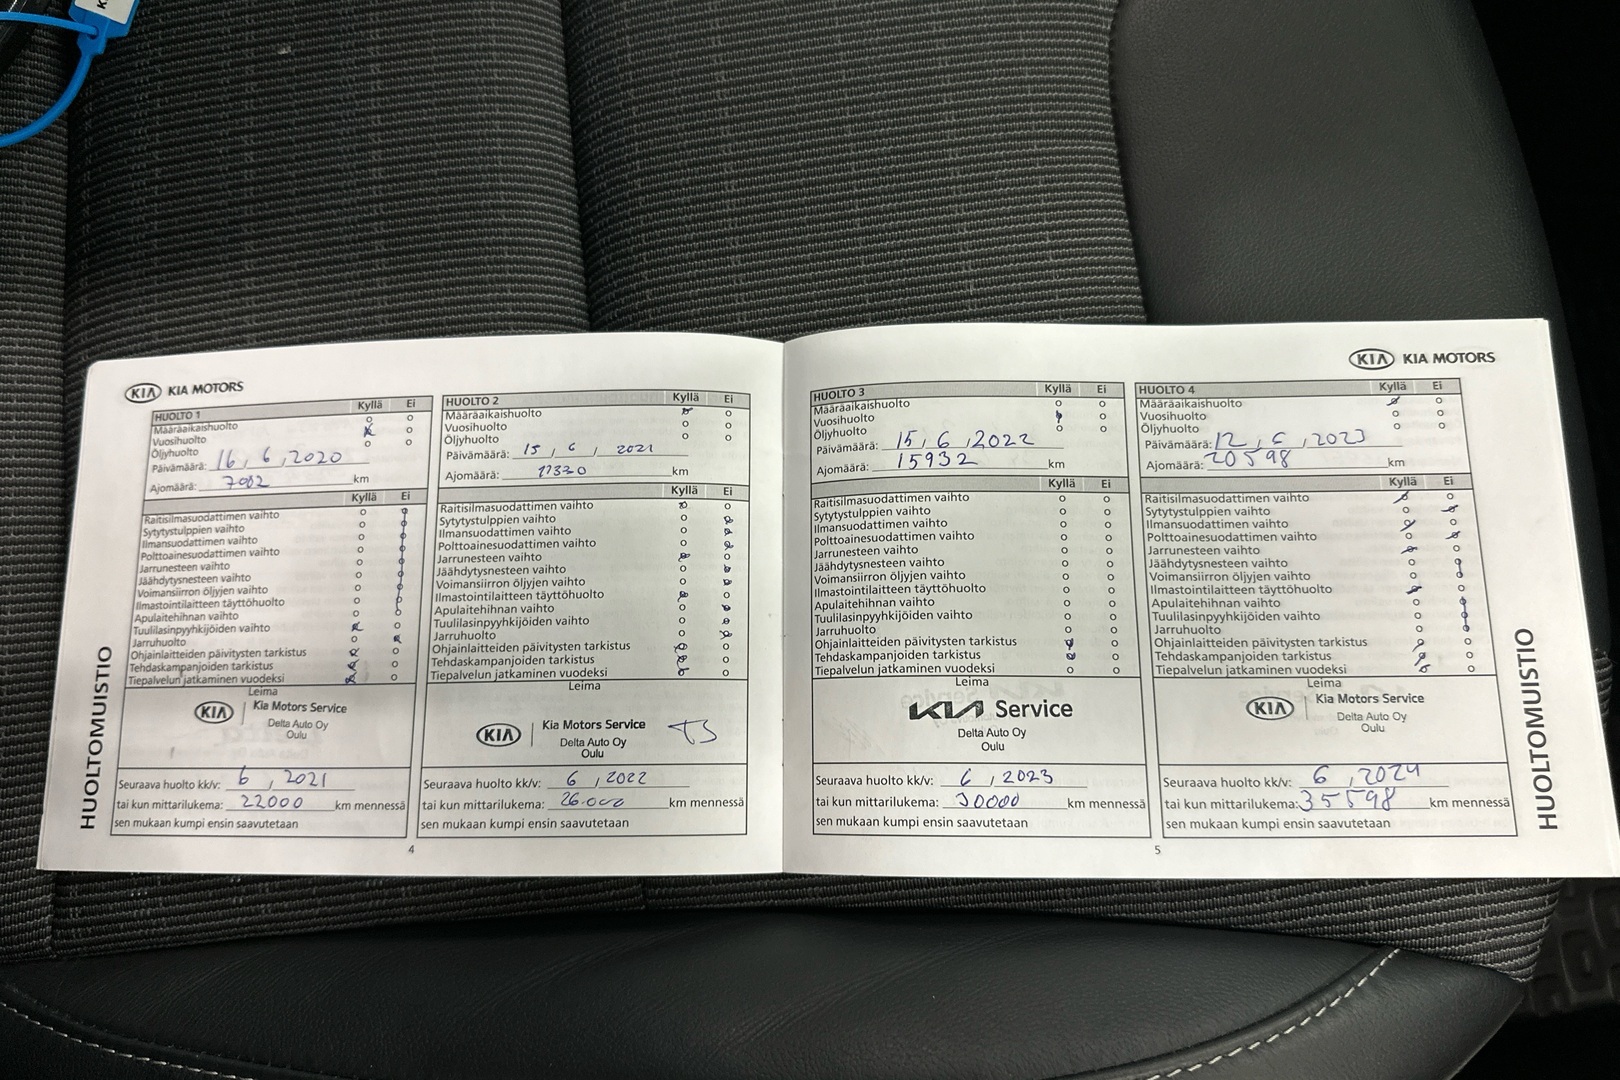 KIA KIA MOTORS
HUOLTOMUISTIO
HUOLTO 1 Kyllä Ei
Määräaikaishuolto
Vuosihuolto
Öljyhuolto
Päivämäärä: 16, 6, 2020
Ajomäärä: 7002 km
Kyllä Ei
Raitisilmasuodattimen vaihto
Sytytystulppien vaihto
Ilmansuodattimen vaihto
Polttoainesuodattimen vaihto
Jarrunesteen vaihto
Jäähdytysnesteen vaihto
Voimansiirron öljyjen vaihto
Ilmastointilaitteen täyttöhuolto
Apulaitehihnan vaihto
Tuulilasinpyyhkijöiden vaihto
Jarruhuolto
Ohjainlaitteiden päivitysten tarkistus
Tehdaskampanjoiden tarkistus
Tiepalvelun jatkaminen vuodeksi
Leima
KIA Kia Motors Service
Delta Auto Oy
Oulu
Seuraava huolto kk/v: 6, 2021
tai kun mittarilukema: 22000 km mennessä
sen mukaan kumpi ensin saavutetaan
HUOLTO 2 Kyllä Ei
Määräaikaishuolto
Vuosihuolto
Öljyhuolto
Päivämäärä: 15, 6, 2021
Ajomäärä: 11330 km
Kyllä Ei
Raitisilmasuodattimen vaihto
Sytytystulppien vaihto
Ilmansuodattimen vaihto
Polttoainesuodattimen vaihto
Jarrunesteen vaihto
Jäähdytysnesteen vaihto
Voimansiirron öljyjen vaihto
Ilmastointilaitteen täyttöhuolto
Apulaitehihnan vaihto
Tuulilasinpyyhkijöiden vaihto
Jarruhuolto
Ohjainlaitteiden päivitysten tarkistus
Tehdaskampanjoiden tarkistus
Tiepalvelun jatkaminen vuodeksi
Leima
KIA Kia Motors Service
Delta Auto Oy
Oulu
Seuraava huolto kk/v: 6, 2022
tai kun mittarilukema: 26.000 km mennessä
sen mukaan kumpi ensin saavutetaan
4
KIA KIA MOTORS
HUOLTO 3 Kyllä Ei
Määräaikaishuolto
Vuosihuolto
Öljyhuolto
Päivämäärä: 15, 6, 2022
Ajomäärä: 15932 km
Kyllä Ei
Raitisilmasuodattimen vaihto
Sytytystulppien vaihto
Ilmansuodattimen vaihto
Polttoainesuodattimen vaihto
Jarrunesteen vaihto
Jäähdytysnesteen vaihto
Voimansiirron öljyjen vaihto
Ilmastointilaitteen täyttöhuolto
Apulaitehihnan vaihto
Tuulilasinpyyhkijöiden vaihto
Jarruhuolto
Ohjainlaitteiden päivitysten tarkistus
Tehdaskampanjoiden tarkistus
Tiepalvelun jatkaminen vuodeksi
Leima
KIA Service
Delta Auto Oy
Oulu
Seuraava huolto kk/v: 6, 2023
tai kun mittarilukema: 30000 km mennessä
sen mukaan kumpi ensin saavutetaan
HUOLTO 4 Kyllä Ei
Määräaikaishuolto
Vuosihuolto
Öljyhuolto
Päivämäärä: 12, 6, 2023
Ajomäärä: 20598 km
Kyllä Ei
Raitisilmasuodattimen vaihto
Sytytystulppien vaihto
Ilmansuodattimen vaihto
Polttoainesuodattimen vaihto
Jarrunesteen vaihto
Jäähdytysnesteen vaihto
Voimansiirron öljyjen vaihto
Ilmastointilaitteen täyttöhuolto
Apulaitehihnan vaihto
Tuulilasinpyyhkijöiden vaihto
Jarruhuolto
Ohjainlaitteiden päivitysten tarkistus
Tehdaskampanjoiden tarkistus
Tiepalvelun jatkaminen vuodeksi
Leima
KIA Kia Motors Service
Delta Auto Oy
Oulu
Seuraava huolto kk/v: 6, 2024
tai kun mittarilukema: 35598 km mennessä
sen mukaan kumpi ensin saavutetaan
HUOLTOMUISTIO
5